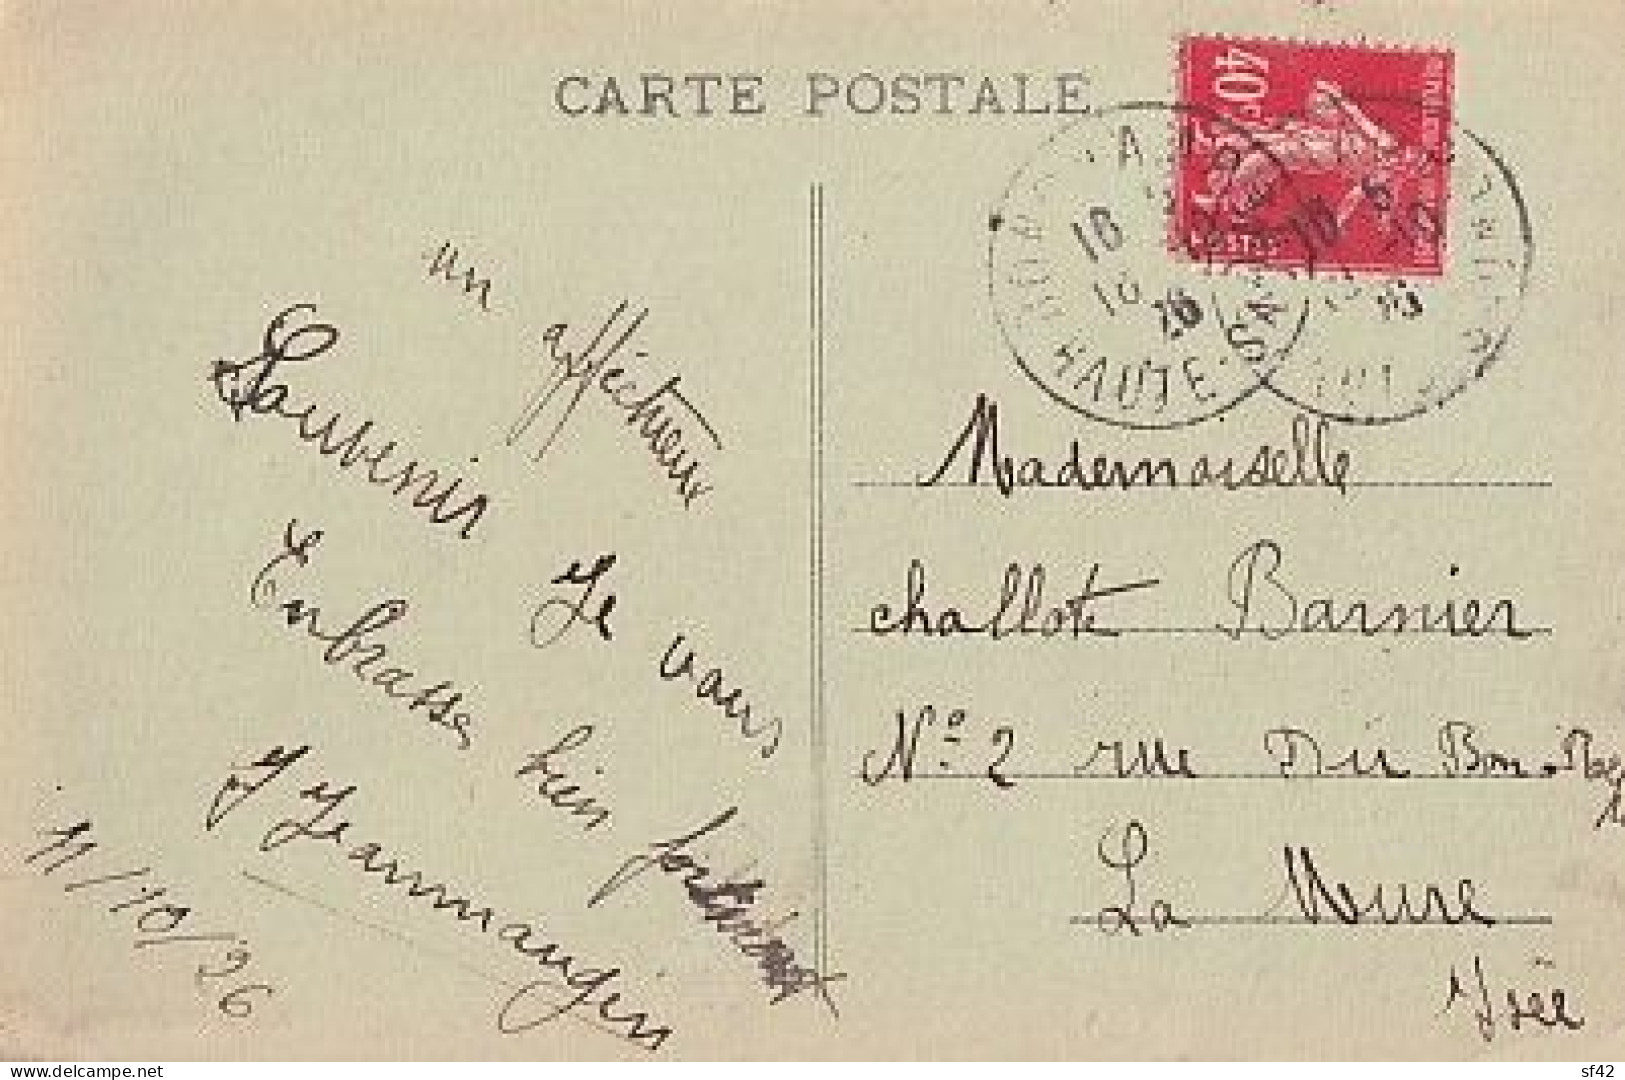 CARTE POSTALE
40c
POSTES
HAUTE-SAÔNE
un affectueux
Souvenir Je vous
Enbrasse bien fortement
J Jeanmaugin
11/10/26
Mademoiselle
challote Barnier
N° 2 rue Du Bon
La Mure
Isèe
www.delcampe.net
sf42